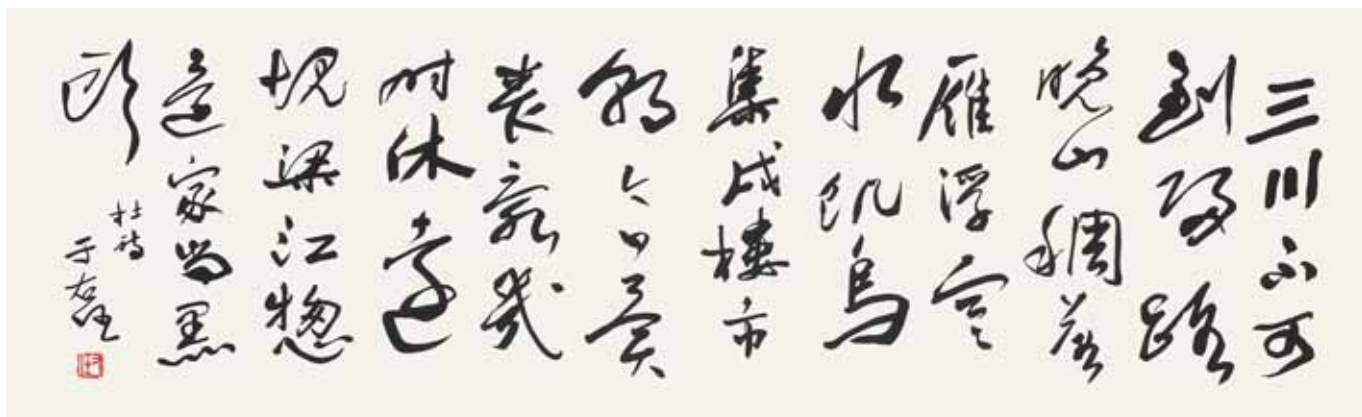 三川不可
到歸路
晚山稠落
雁浮寒
水飢烏
集戍樓市
朝今日異
喪亂幾
時休遠
愧梁江惣
還家尚黑
頭
杜詩
于右任